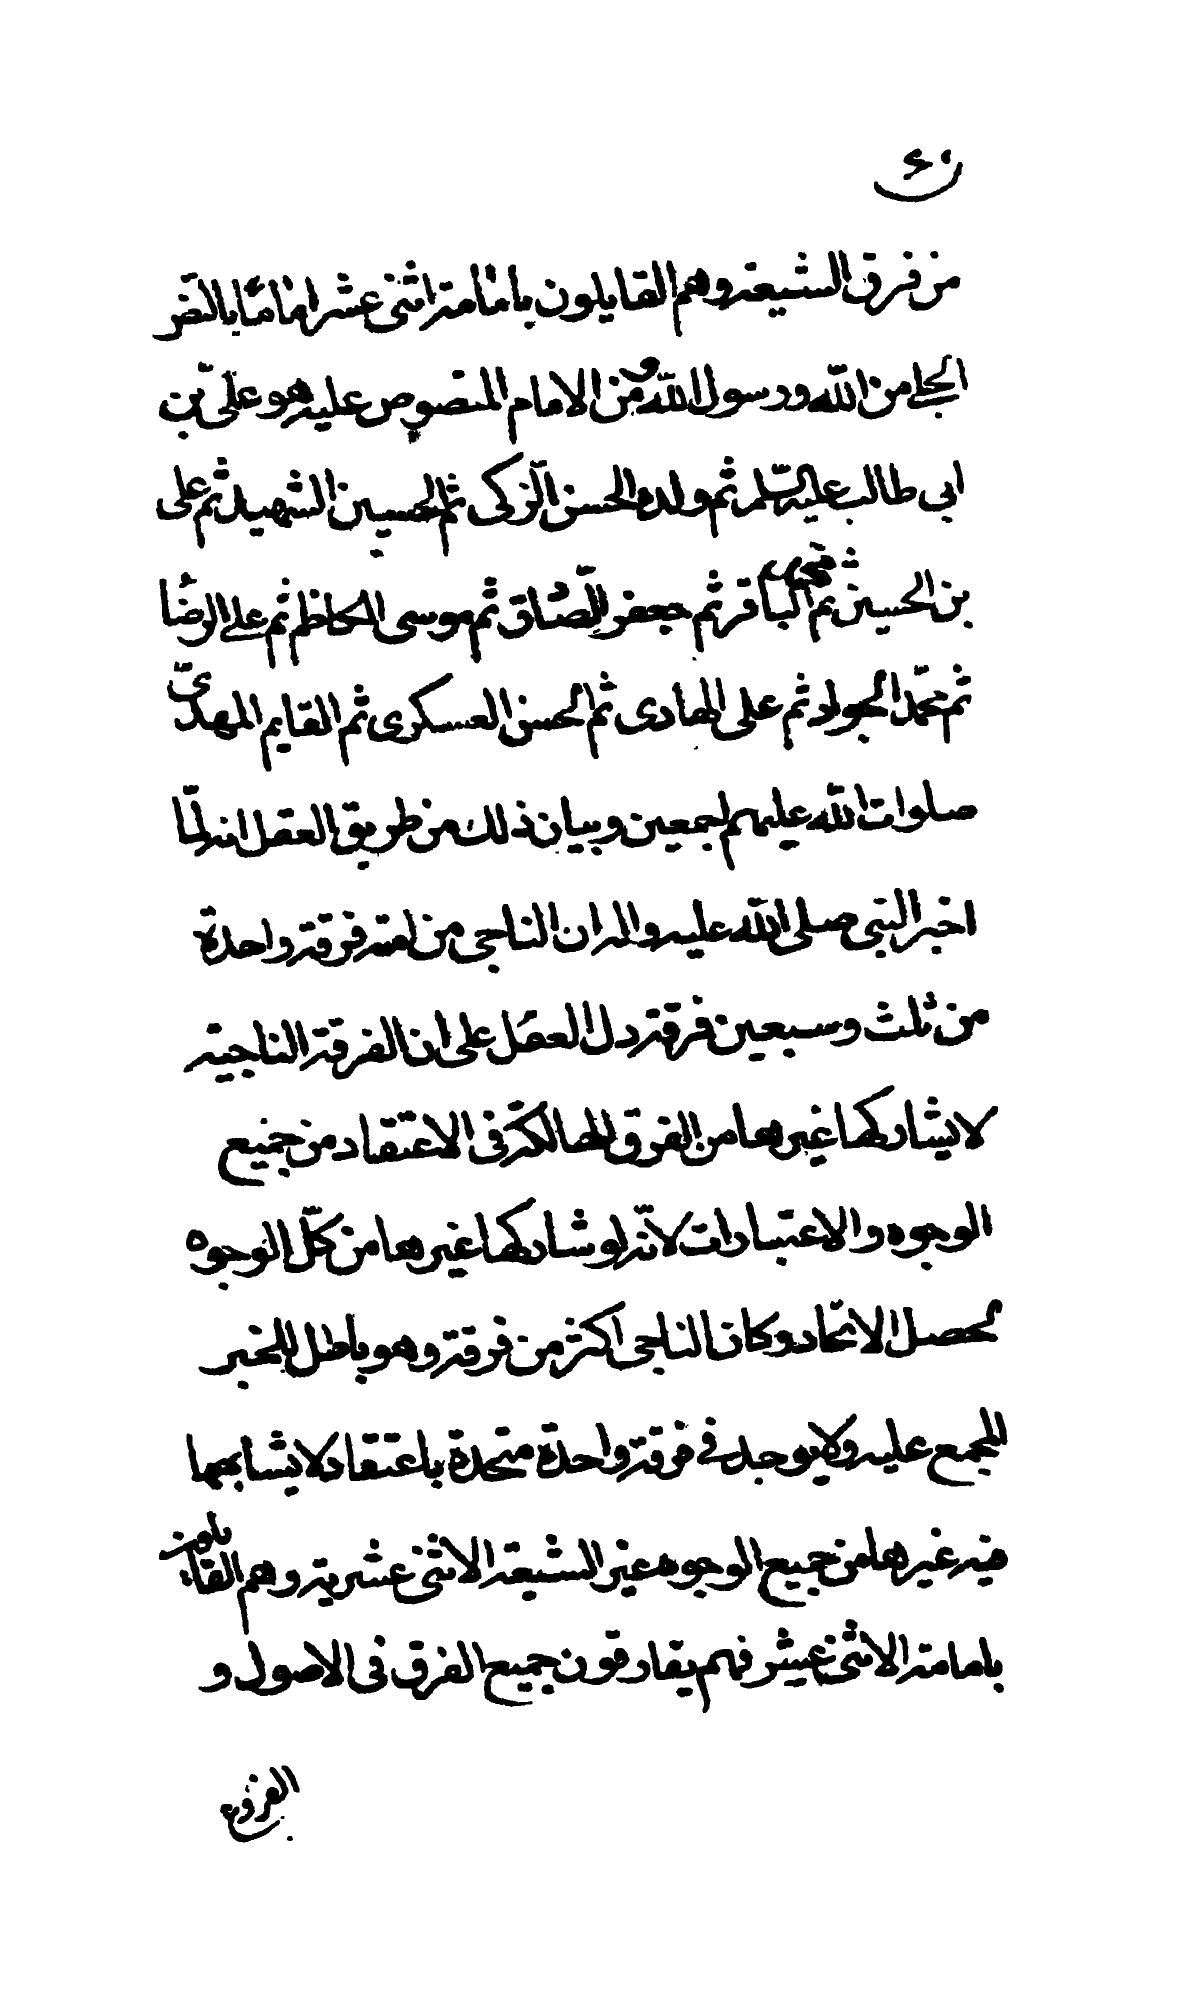 من فرق الشيعة وهم القايلون بامامة اثنى عشر اماما بالنص
الجلي من الله ورسول الله ص من الامام المنصوص عليه هو على بن
ابي طالب عليه السلم ثم ولده الحسن الزكى ثم الحسين الشهيد ثم على
بن الحسين ثم محمد الباقر ثم جعفر الصادق ثم موسى الكاظم ثم علي الرضا
ثم محمد الجواد ثم على الهادى ثم الحسن العسكرى ثم القايم المهدى
صلوات الله عليهم اجمعين وبيان ذلك من طريق العقل انه لما
اخبر النبى صلى الله عليه واله ان الناجى من امته فرقة واحدة
من ثلث وسبعين فرقة دل العقل على ان الفرقة الناجية
لا يشاركها غيرها من الفرق الهالكة فى الاعتقاد من جميع
الوجوه والاعتبارات لانه لو شاركها غيرها من كل الوجوه
لحصل الاتحاد وكان الناجى اكثر من فرقة وهو باطل للخبر
المجمع عليه ولا يوجد في فرقة واحدة متحدة باعتقاد لا يشابهها
فيه غيرها من جميع الوجوه غير الشيعة الاثنى عشرية وهم القايلون
بامامة الاثنى عشر فهم يفارقون جميع الفرق فى الاصول و
الفروع